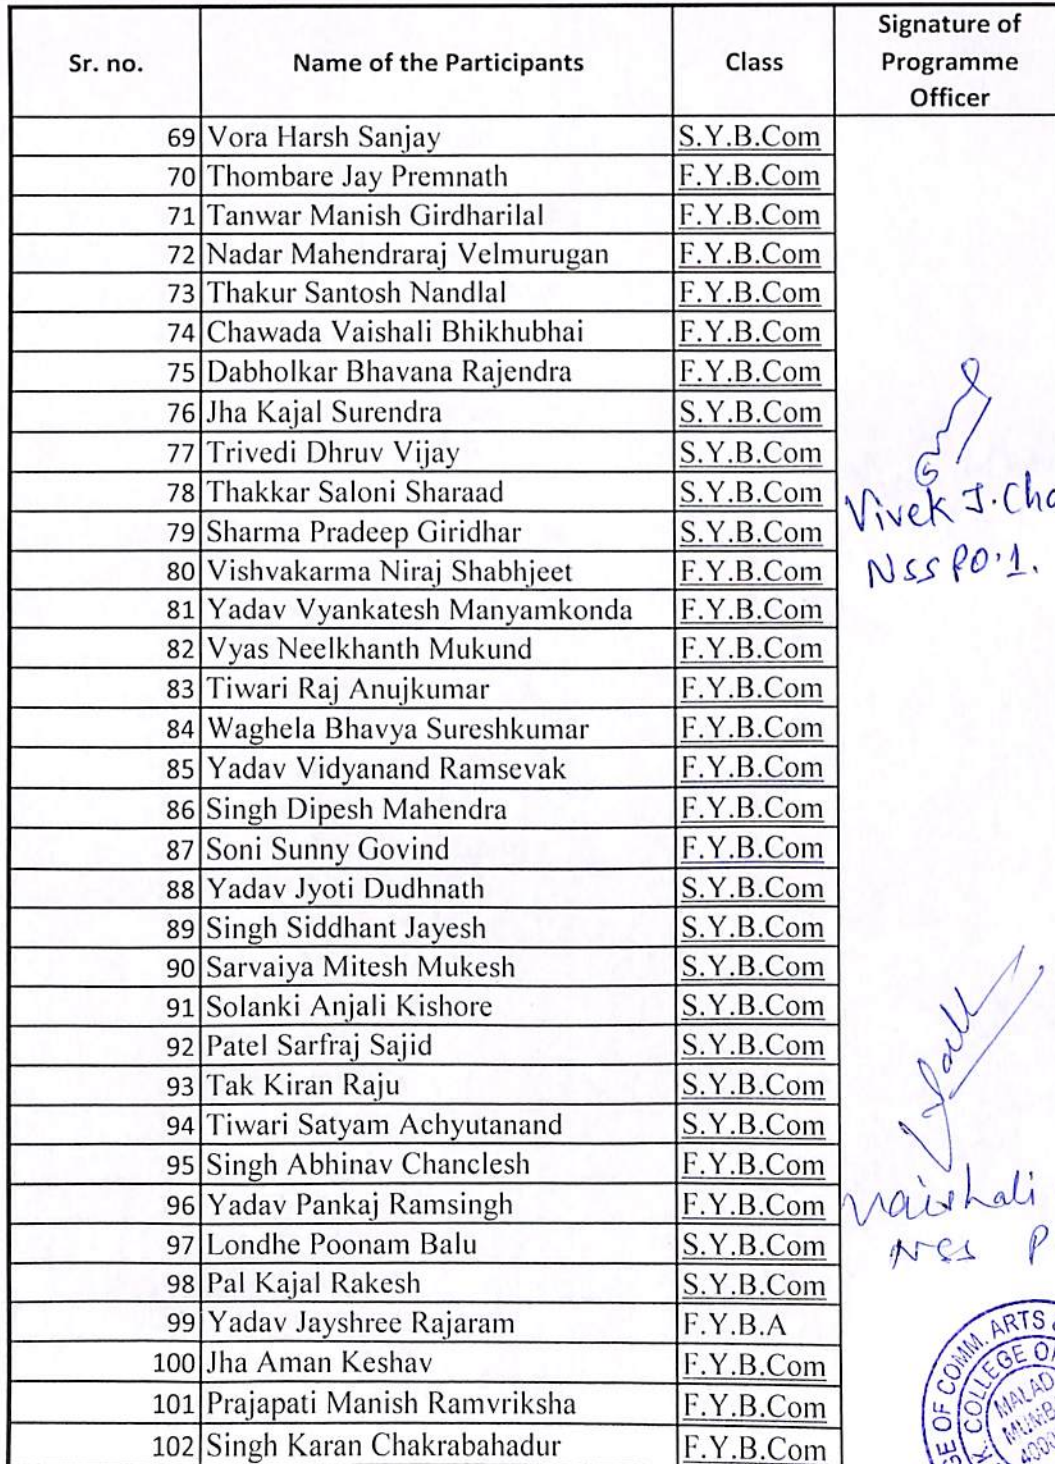 Sr. no. Name of the Participants Class Signature of Programme Officer
69 Vora Harsh Sanjay S.Y.B.Com
70 Thombare Jay Premnath F.Y.B.Com
71 Tanwar Manish Girdharilal F.Y.B.Com
72 Nadar Mahendraraj Velmurugan F.Y.B.Com
73 Thakur Santosh Nandlal F.Y.B.Com
74 Chawada Vaishali Bhikhubhai F.Y.B.Com
75 Dabholkar Bhavana Rajendra F.Y.B.Com
76 Jha Kajal Surendra S.Y.B.Com
77 Trivedi Dhruv Vijay S.Y.B.Com
78 Thakkar Saloni Sharaad S.Y.B.Com
Vivek J. Cha
79 Sharma Pradeep Giridhar S.Y.B.Com
80 Vishvakarma Niraj Shabhjeet F.Y.B.Com
NSS PO.1.
81 Yadav Vyankatesh Manyamkonda F.Y.B.Com
82 Vyas Neelkhanth Mukund F.Y.B.Com
83 Tiwari Raj Anujkumar F.Y.B.Com
84 Waghela Bhavya Sureshkumar F.Y.B.Com
85 Yadav Vidyanand Ramsevak F.Y.B.Com
86 Singh Dipesh Mahendra F.Y.B.Com
87 Soni Sunny Govind F.Y.B.Com
88 Yadav Jyoti Dudhnath S.Y.B.Com
89 Singh Siddhant Jayesh S.Y.B.Com
90 Sarvaiya Mitesh Mukesh S.Y.B.Com
91 Solanki Anjali Kishore S.Y.B.Com
92 Patel Sarfraj Sajid S.Y.B.Com
93 Tak Kiran Raju S.Y.B.Com
94 Tiwari Satyam Achyutanand S.Y.B.Com
95 Singh Abhinav Chanclesh F.Y.B.Com
96 Yadav Pankaj Ramsingh F.Y.B.Com
Vaishali
97 Londhe Poonam Balu S.Y.B.Com
NSS P
98 Pal Kajal Rakesh S.Y.B.Com
99 Yadav Jayshree Rajaram F.Y.B.A
100 Jha Aman Keshav F.Y.B.Com
101 Prajapati Manish Ramvriksha F.Y.B.Com
102 Singh Karan Chakrabahadur F.Y.B.Com
GE OF COMM. ARTS &
K. COLLEGE OF
MALAD
MUMB
4000